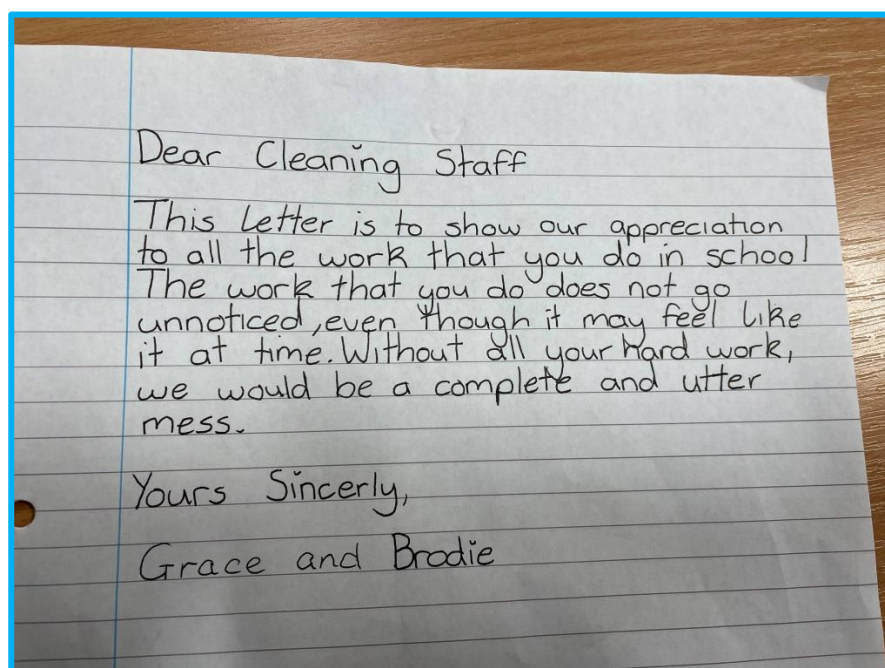 Dear Cleaning Staff
This Letter is to show our appreciation
to all the work that you do in school
The work that you do does not go
unnoticed, even though it may feel like
it at time. Without all your hard work,
we would be a complete and utter
mess.
Yours Sincerly,
Grace and Brodie